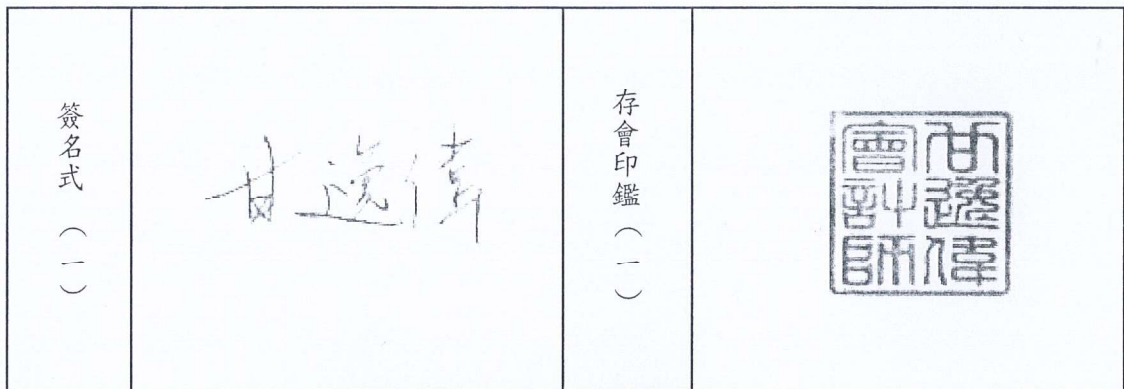 簽名式（一）
甘逸偉
存會印鑑（一）
甘逸偉
會計師